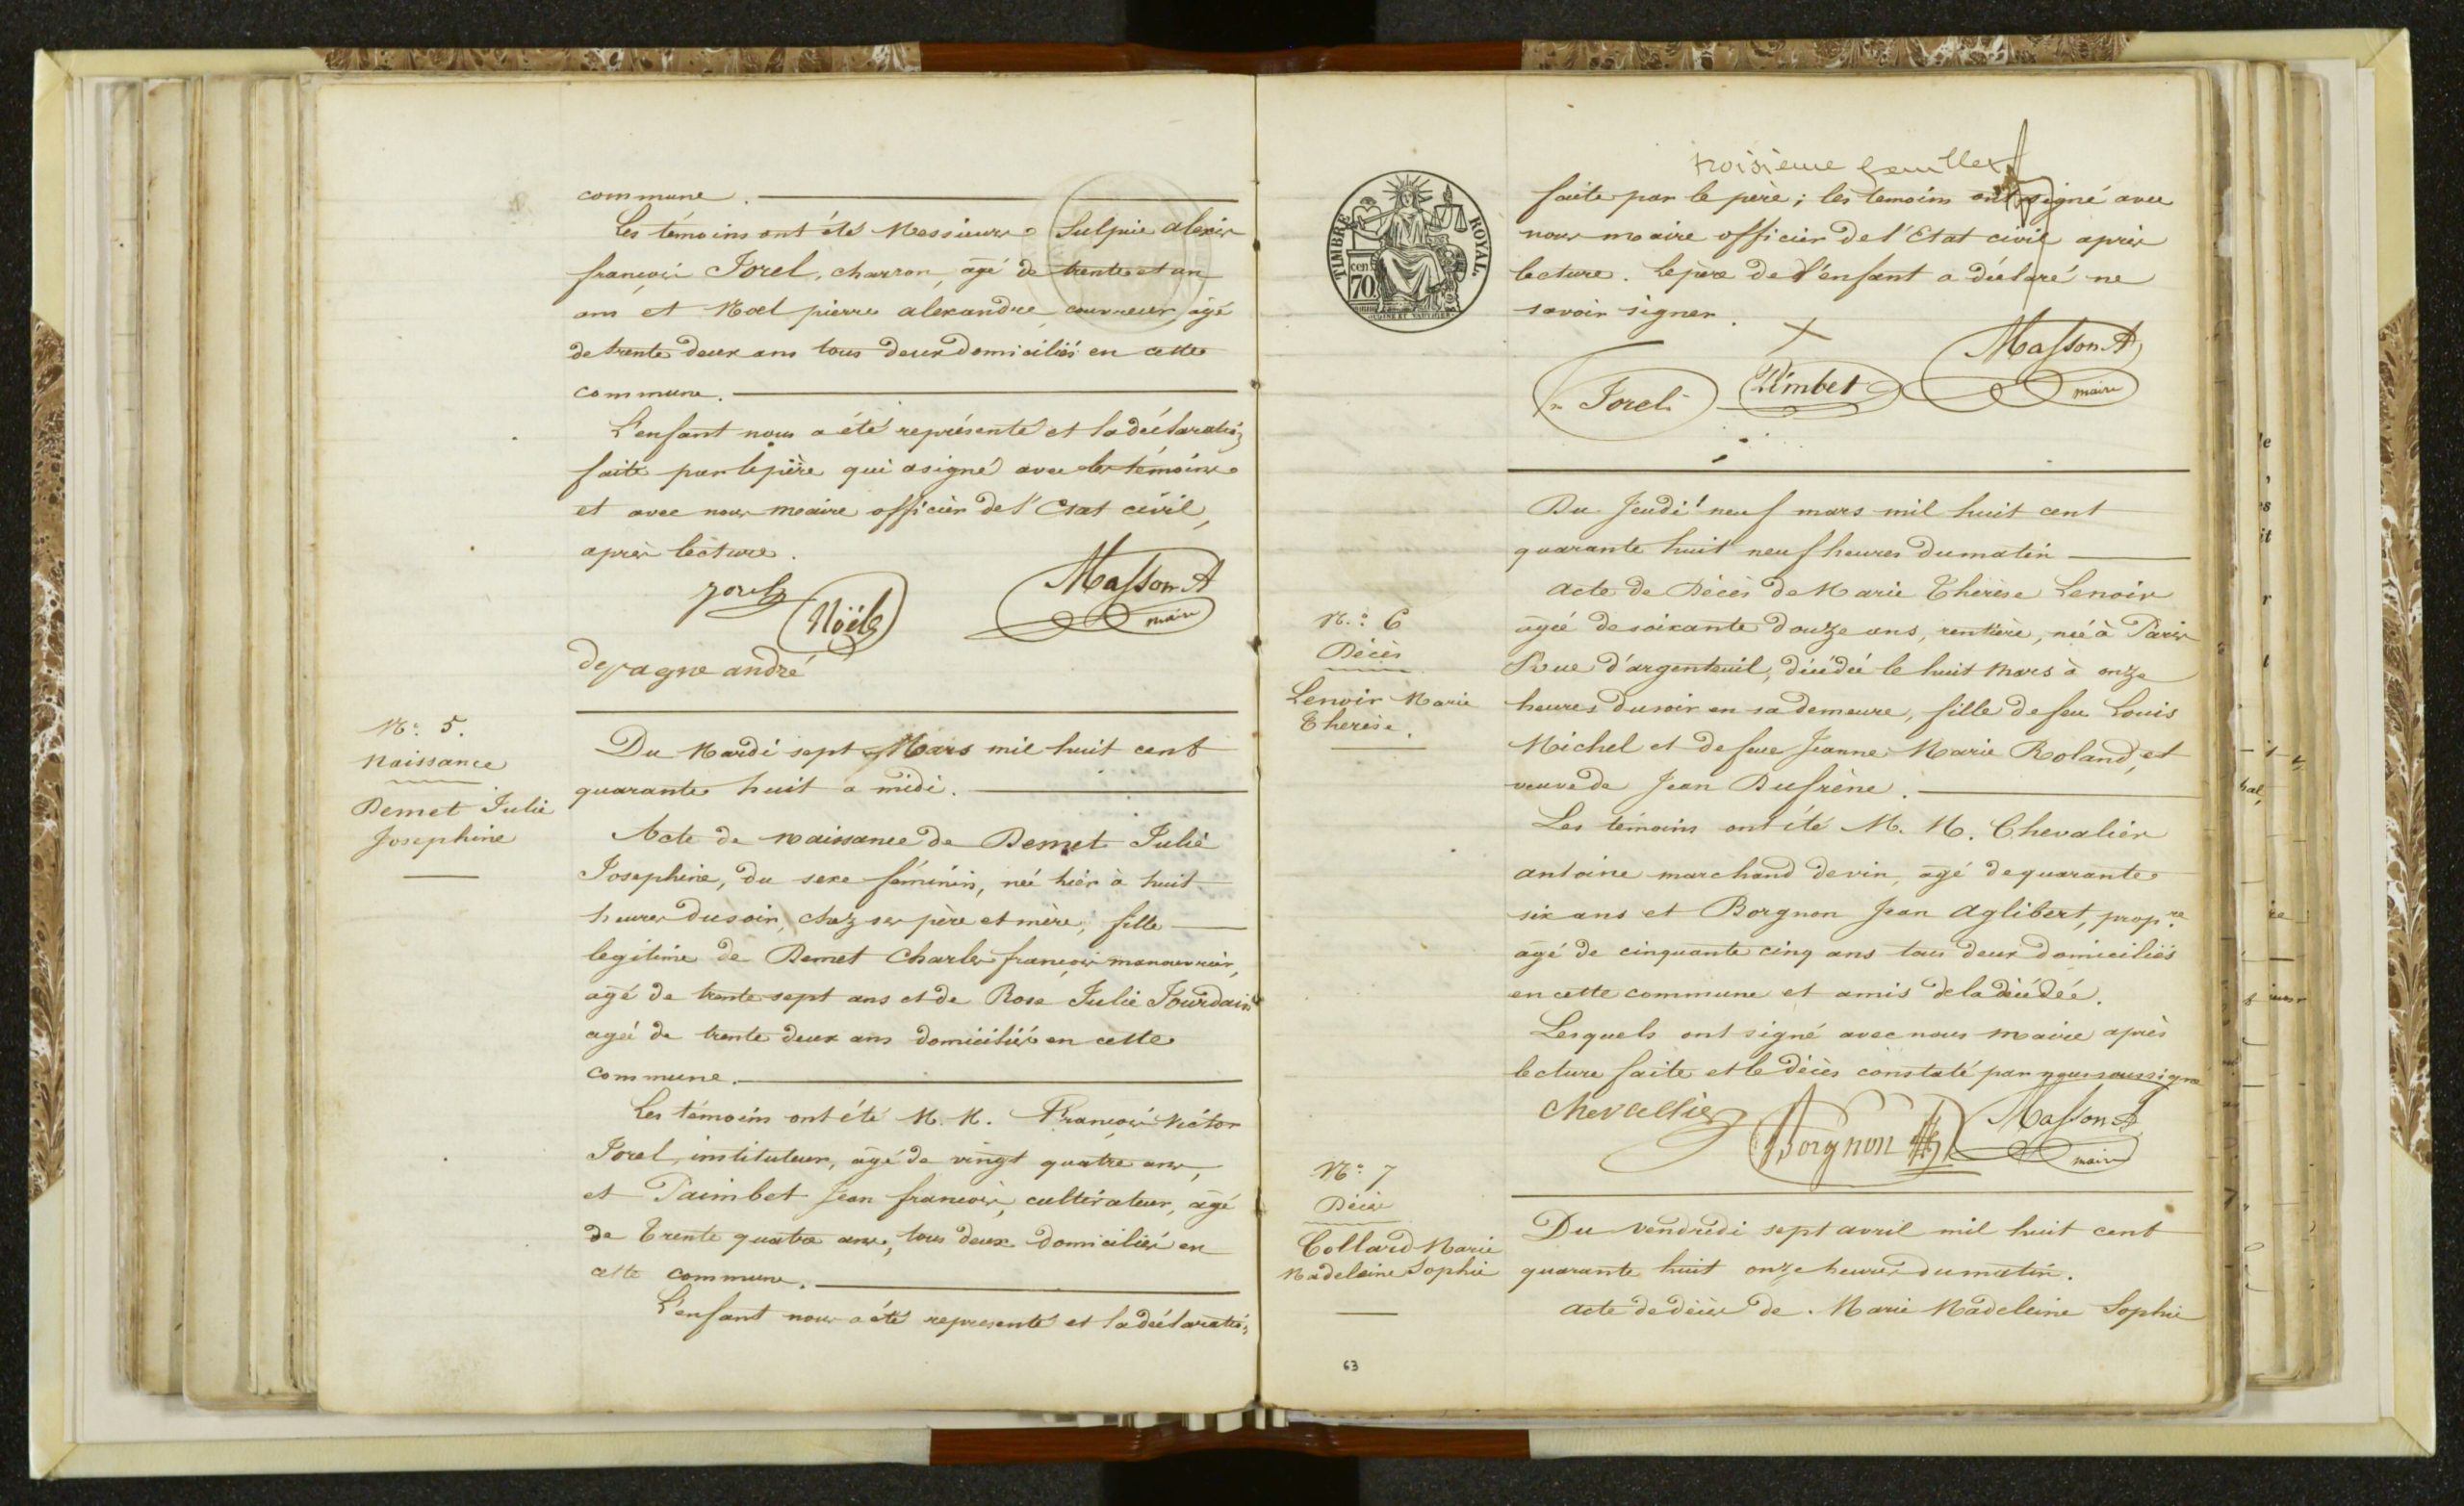 commune.
Les témoins ont été Messieurs Sulpice alexis
françois Jorel, charron, agé de trente et un
ans et Noel pierre alexandre, couvreur, agé
de trente deux ans tous deux domiciliés en cette
commune.
L'enfant nous a été représenté et la déclaration
faite par le père qui a signé avec les témoins
et avec nous maire officier de l'Etat civil,
après lecture.
Jorel
Noël
Masson A
maire
depagne andré
N.° 5.
Naissance
Demet Julie
Josephine
Du Mardi sept Mars mil huit cent
quarante huit a midi.
Acte de naissance de Demet Julie
Josephine, du sexe féminin, née hier à huit
heures du soir, chez ses père et mère, fille
legitime de Demet Charles françois manouvrier,
agé de trente sept ans et de Rose Julie Jourdain
agée de trente deux ans domiciliés en cette
commune.
Les témoins ont été M. M. François Victor
Jorel, instituteur, agé de vingt quatre ans,
et Paimbet Jean françois, cultivateur, agé
de trente quatre ans, tous deux domiciliés en
cette commune.
L'enfant nous a été representé et la déclaration
TIMBRE ROYAL.
cen.
70
troisième feuillet
faite par le père; les temoins ont signé avec
nous maire officier de l'Etat civil après
lecture. Le père de l'enfant a déclaré ne
savoir signer.
Jorel
Masson A
maire
Du Jeudi neuf mars mil huit cent
quarante huit neuf heures du matin
N.° 6
Décès
Lenoir Marie
Therèse.
acte de Décès de Marie Thérèse Lenoir
agée de soixante douze ans, rentière, née à Paris
Rue d'argenteuil, décédée le huit Mars à onze
heures du soir en sa demeure, fille de feu Louis
Michel et de feue Jeanne Marie Roland, et
veuve de Jean Dufrène.
Les témoins ont été M. M. Chevalier
antoine marchand de vin, agé de quarante
six ans et Borgnon Jean Aglibert, prop.re
agé de cinquante cinq ans tous deux domiciliés
en cette commune et amis de la décédée.
Lesquels ont signé avec nous maire après
lecture faite et le décès constaté par nous soussigné
Chevallier
Borgnon
Masson A
maire
N.° 7
Décès
Collard Marie
Madeleine Sophie
Du vendredi sept avril mil huit cent
quarante huit onze heures du matin.
acte de décès de Marie Madeleine Sophie
63